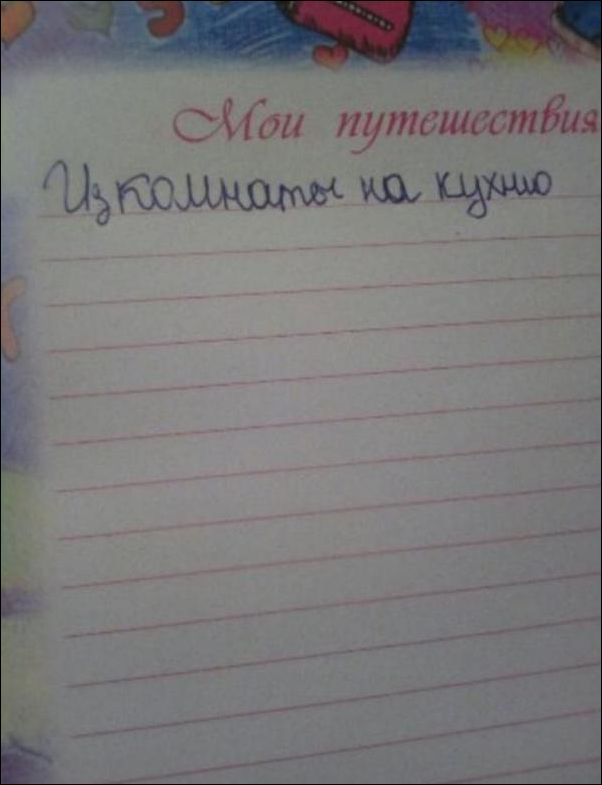 Мои путешествия
Из комнаты на кухню